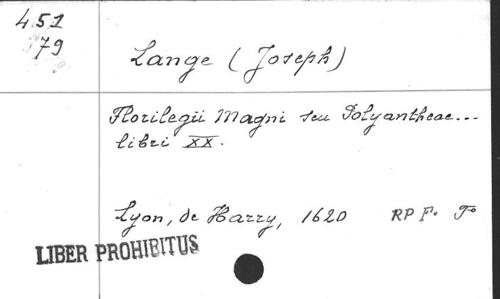 451
79
Lange (Joseph)
Florilegii Magni seu Polyantheae...
libri XX.
Lyon, de Harry, 1620 RP F. Fº
LIBER PROHIBITUS